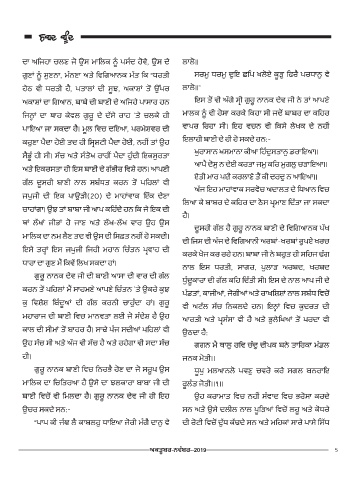 ਦਾ ਅਜਿਹਾ ਚਲਣ ਜੋ ਉਸ ਮਾਲਿਕ ਨੂੰ ਪਸੰਦ ਹੋਵੇ, ਉਸ ਦੇ
ਗੁਣਾਂ ਨੂੰ ਸੁਣਨਾ, ਮੰਨਣਾ ਅਤੇ ਵਿਗਿਆਨਕ ਮੱਤ ਕਿ "ਧਰਤੀ
ਹੇਠ ਵੀ ਧਰਤੀ ਹੈ, ਪਤਾਲਾਂ ਦੀ ਸੂਝ, ਅਕਾਸ਼ਾਂ ਤੋਂ ਉੱਪਰ
ਅਕਾਸ਼ਾਂ ਦਾ ਗਿਆਨ, ਬਾਬੇ ਦੀ ਬਾਣੀ ਦੇ ਅਜਿਹੇ ਪਾਸਾਰ ਹਨ
ਜਿਨ੍ਹਾਂ ਦਾ ਥਾਹ ਕੇਵਲ ਗੁਰੂ ਦੇ ਦੱਸੇ ਰਾਹ 'ਤੇ ਚਲਕੇ ਹੀ
ਪਾਇਆ ਜਾ ਸਕਦਾ ਹੈ। ਮੂਲ ਵਿਚ ਦਇਆ, ਪਰਮੇਸ਼ਵਰ ਦੀ
ਕਰੁਣਾ ਪੈਦਾ ਹੋਈ ਤਦ ਹੀ ਸ੍ਰਿਸ਼ਟੀ ਪੈਦਾ ਹੋਈ, ਨਹੀਂ ਤਾਂ ਉਹ
ਸੈਭੂੰ ਹੀ ਸੀ। ਸੱਚ ਅਤੇ ਸੰਤੋਖ ਰਾਹੀਂ ਪੈਦਾ ਹੁੰਦੀ ਇਕਸੁਰਤਾ
ਅਤੇ ਇਕਰਸਤਾ ਹੀ ਇਸ ਬਾਣੀ ਦੇ ਗੰਭੀਰ ਵਿਸ਼ੇ ਹਨ। ਆਪਣੀ
ਗੱਲ ਦੂਸਰੀ ਬਾਣੀ ਨਾਲ ਸਬੰਧਤ ਕਰਨ ਤੋਂ ਪਹਿਲਾਂ ਵੀ
ਜਪੁਜੀ ਦੀ ਇਕ ਪਾਉੜੀ(20) ਦੇ ਮਾਹਾਂਵਾਕ ਇੱਕ ਦੇਣਾ
ਚਾਹਾਂਗਾ। ਉਝ ਤਾਂ ਬਾਬਾ ਜੀ ਆਪ ਕਹਿੰਦੇ ਹਨ ਕਿ ਜੇ ਇਕ ਦੀ
ਥਾਂ ਲੱਖਾਂ ਜੀਭਾਂ ਹੋ ਜਾਣ ਅਤੇ ਲੱਖ-ਲੱਖ ਵਾਰ ਉਹ ਉਸ
ਮਾਲਿਕ ਦਾ ਨਾਮ ਲੈਣ ਤਦ ਵੀ ਉਸ ਦੀ ਸਿਫ਼ਤ ਨਹੀਂ ਹੋ ਸਕਦੀ।
ਇਸੇ ਤਰ੍ਹਾਂ ਇਸ ਜਪੁਜੀ ਜਿਹੀ ਮਹਾਨ ਚਿੰਤਨ ਪ੍ਰਵਾਹ ਦੀ
ਧਾਰਾ ਦਾ ਗੁਣ ਮੈਂ ਕਿਵੇਂ ਲਿਖ ਸਕਦਾ ਹਾਂ।
ਗੁਰੂ ਨਾਨਕ ਦੇਵ ਜੀ ਦੀ ਬਾਣੀ ਆਸਾ ਦੀ ਵਾਰ ਦੀ ਗੱਲ
ਕਰਨ ਤੋਂ ਪਹਿਲਾਂ ਮੈਂ ਸਾਹਮਣੇ ਆਪਣੇ ਚਿੰਤਨ 'ਤੇ ਉਕਰੇ ਕੁਝ
ਕੁ ਵਿਸ਼ੇਸ਼ ਬਿੰਦੂਆਂ ਦੀ ਗੱਲ ਕਰਨੀ ਚਾਹੁੰਦਾ ਹਾਂ। ਗੁਰੂ
ਮਹਾਰਾਜ ਦੀ ਬਾਣੀ ਵਿਚ ਮਾਨਵਤਾ ਲਈ ਜੋ ਸੰਦੇਸ਼ ਹੈ ਉਹ
ਕਾਲ ਦੀ ਸੀਮਾਂ ਤੋਂ ਬਾਹਰ ਹੈ। ਸਾਢੇ ਪੰਜ ਸਦੀਆਂ ਪਹਿਲਾਂ ਵੀ
ਉਹ ਸੱਚ ਸੀ ਅਤੇ ਅੱਜ ਵੀ ਸੱਚ ਹੈ ਅਤੇ ਰਹੇਗਾ ਵੀ ਸਦਾ ਸੱਚ
ਹੀ।
ਗੁਰੂ ਨਾਨਕ ਬਾਣੀ ਵਿਚ ਨਿਰਭੈ ਹੋਣ ਦਾ ਜੋ ਸਰੂਪ ਉਸ
ਮਾਲਿਕ ਦਾ ਚਿਤਰਿਆ ਹੈ ਉਸੇ ਦਾ ਝਲਕਾਰਾ ਬਾਬਾ ਜੀ ਦੀ
ਬਾਣੀ ਵਿਚੋਂ ਵੀ ਮਿਲਦਾ ਹੈ। ਗੁਰੂ ਨਾਨਕ ਦੇਵ ਜੀ ਹੀ ਇਹ
ਉਚਰ ਸਕਦੇ ਸਨ:-
"ਪਾਪ ਕੀ ਜੰਞ ਲੈ ਕਾਬਲਹੁ ਧਾਇਆ ਜੋਰੀ ਮੰਗੈ ਦਾਨੁ ਵੇ
ਲਾਲੋ॥
ਸਰਮੁ ਧਰਮੁ ਦੁਇ ਛਪਿ ਖਲੋਏ ਕੂੜੁ ਫਿਰੈ ਪਰਧਾਨੁ ਵੇ
ਲਾਲੋ॥"
ਇਸ ਤੋਂ ਵੀ ਅੱਗੇ ਸ੍ਰੀ ਗੁਰੂ ਨਾਨਕ ਦੇਵ ਜੀ ਨੇ ਤਾਂ ਆਪਣੇ
ਮਾਲਕ ਨੂੰ ਵੀ ਰੋਸਾ ਕਰਕੇ ਕਿਹਾ ਸੀ ਜਦੋਂ ਬਾਬਰ ਦਾ ਕਹਿਰ
ਵਾਪਰ ਰਿਹਾ ਸੀ। ਇਹ ਵਚਨ ਵੀ ਕਿਸੇ ਲੇਖਕ ਦੇ ਨਹੀਂ
ਇਲਾਹੀ ਬਾਣੀ ਦੇ ਹੀ ਹੋ ਸਕਦੇ ਹਨ:-
ਖੁਰਾਸਾਨ ਖਸਮਾਨਾ ਕੀਆ ਹਿੰਦੁਸਤਾਨੁ ਡਰਾਇਆ॥
ਆਪੈ ਦੋਸੁ ਨ ਦੇਈ ਕਰਤਾ ਜਮੁ ਕਰਿ ਮੁਗਲੁ ਚੜਾਇਆ॥
ਏਤੀ ਮਾਰ ਪਈ ਕਰਲਾਣੇ ਤੈਂ ਕੀ ਦਰਦੁ ਨ ਆਇਆ॥
ਅੱਜ ਇਹ ਮਾਹਾਂਵਾਕ ਸਰਵੋਚ ਅਦਾਲਤ ਦੇ ਧਿਆਨ ਵਿਚ
ਲਿਆ ਕੇ ਬਾਬਰ ਦੇ ਕਹਿਰ ਦਾ ਠੋਸ ਪ੍ਰਮਾਣ ਦਿੱਤਾ ਜਾ ਸਕਦਾ
ਹੈ।
ਦੂਸਰੀ ਗੱਲ ਹੈ ਗੁਰੂ ਨਾਨਕ ਬਾਣੀ ਦੇ ਵਿਗਿਆਨਕ ਪੱਖ
ਦੀ ਜਿਸ ਦੀ ਅੱਜ ਦੇ ਵਿਗਿਆਨੀ ਅਰਬਾਂ ਖਰਬਾਂ ਰੁਪਏ ਖਰਚ
ਕਰਕੇ ਖੋਜ ਕਰ ਰਹੇ ਹਨ। ਬਾਬਾ ਜੀ ਨੇ ਬਹੁਤ ਹੀ ਸਹਿਜ ਢੰਗ
ਨਾਲ ਇਸ ਧਰਤੀ, ਸਾਗਰ, ਪੁਲਾੜ ਅਰਬਦ, ਨਰਬਦ
ਧੁੰਦੂਕਾਰਾ ਦੀ ਗੱਲ ਕਹਿ ਦਿੱਤੀ ਸੀ। ਇਸ ਦੇ ਨਾਲ ਆਪ ਜੀ ਦੇ
ਪੰਡਤਾਂ, ਕਾਜ਼ੀਆਂ, ਜੋਗੀਆਂ ਅਤੇ ਰਾਖਸ਼ਿਸ਼ਾਂ ਨਾਲ ਸਬੰਧ ਵਿਚੋਂ
ਵੀ ਅਟੱਲ ਸੱਚ ਨਿਕਲਦੇ ਹਨ। ਇਨ੍ਹਾਂ ਵਿਚ ਕੁਦਰਤ ਦੀ
ਆਰਤੀ ਅਤੇ ਪ੍ਰਸੰਸਾ ਵੀ ਹੈ ਅਤੇ ਭੁਲੇਖਿਆਂ ਤੋਂ ਪਰਦਾ ਵੀ
ਉਠਦਾ ਹੈ:
ਗਗਨ ਮੈ ਥਾਲੁ ਰਵਿ ਚੰਦੁ ਦੀਪਕ ਬਨੇ ਤਾਰਿਕਾ ਮੰਡਲ
ਜਨਕ ਮੋਤੀ॥
ਧੂਪੁ ਮਲਆਨਲੋ ਪਵਣੁ ਚਵਰੋ ਕਰੇ ਸਗਲ ਬਨਰਾਇ
ਫੂਲੰਤ ਜੋਤੀ॥੧॥
ਉਹ ਕਰਾਮਾਤ ਵਿਚ ਨਹੀਂ ਸੰਵਾਦ ਵਿਚ ਭਰੋਸਾ ਕਰਦੇ
ਸਨ ਅਤੇ ਉਸੇ ਦਲੀਲ ਨਾਲ ਪੂੜਿਆਂ ਵਿਚੋਂ ਲਹੂ ਅਤੇ ਕੋਧਰੇ
ਦੀ ਰੋਟੀ ਵਿਚੋਂ ਦੁੱਧ ਕੱਢਦੇ ਸਨ ਅਤੇ ਮਹਿਕਾਂ ਸਾਰੇ ਪਾਸੇ ਸਿੱਧ
ਅਕਤੂਬਰ-ਨਵੰਬਰ-2019
5